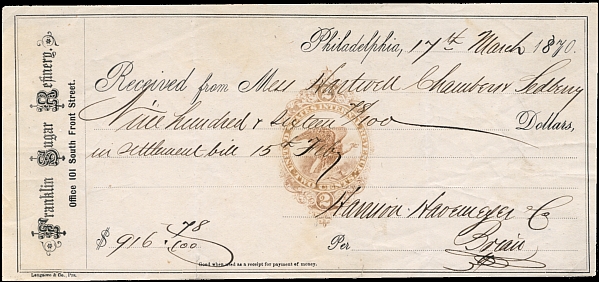 Franklin Sugar Refinery.
Office 101 South Front Street.
Philadelphia, 17th March 1870.
Received from Mess Hartwell Chambers
Nine hundred & sixteen 78/100 Dollars,
in settlement bill 15th
Harrison Havemeyer & Co
$ 916 78/100 Per
Good when used as a receipt for payment of money.